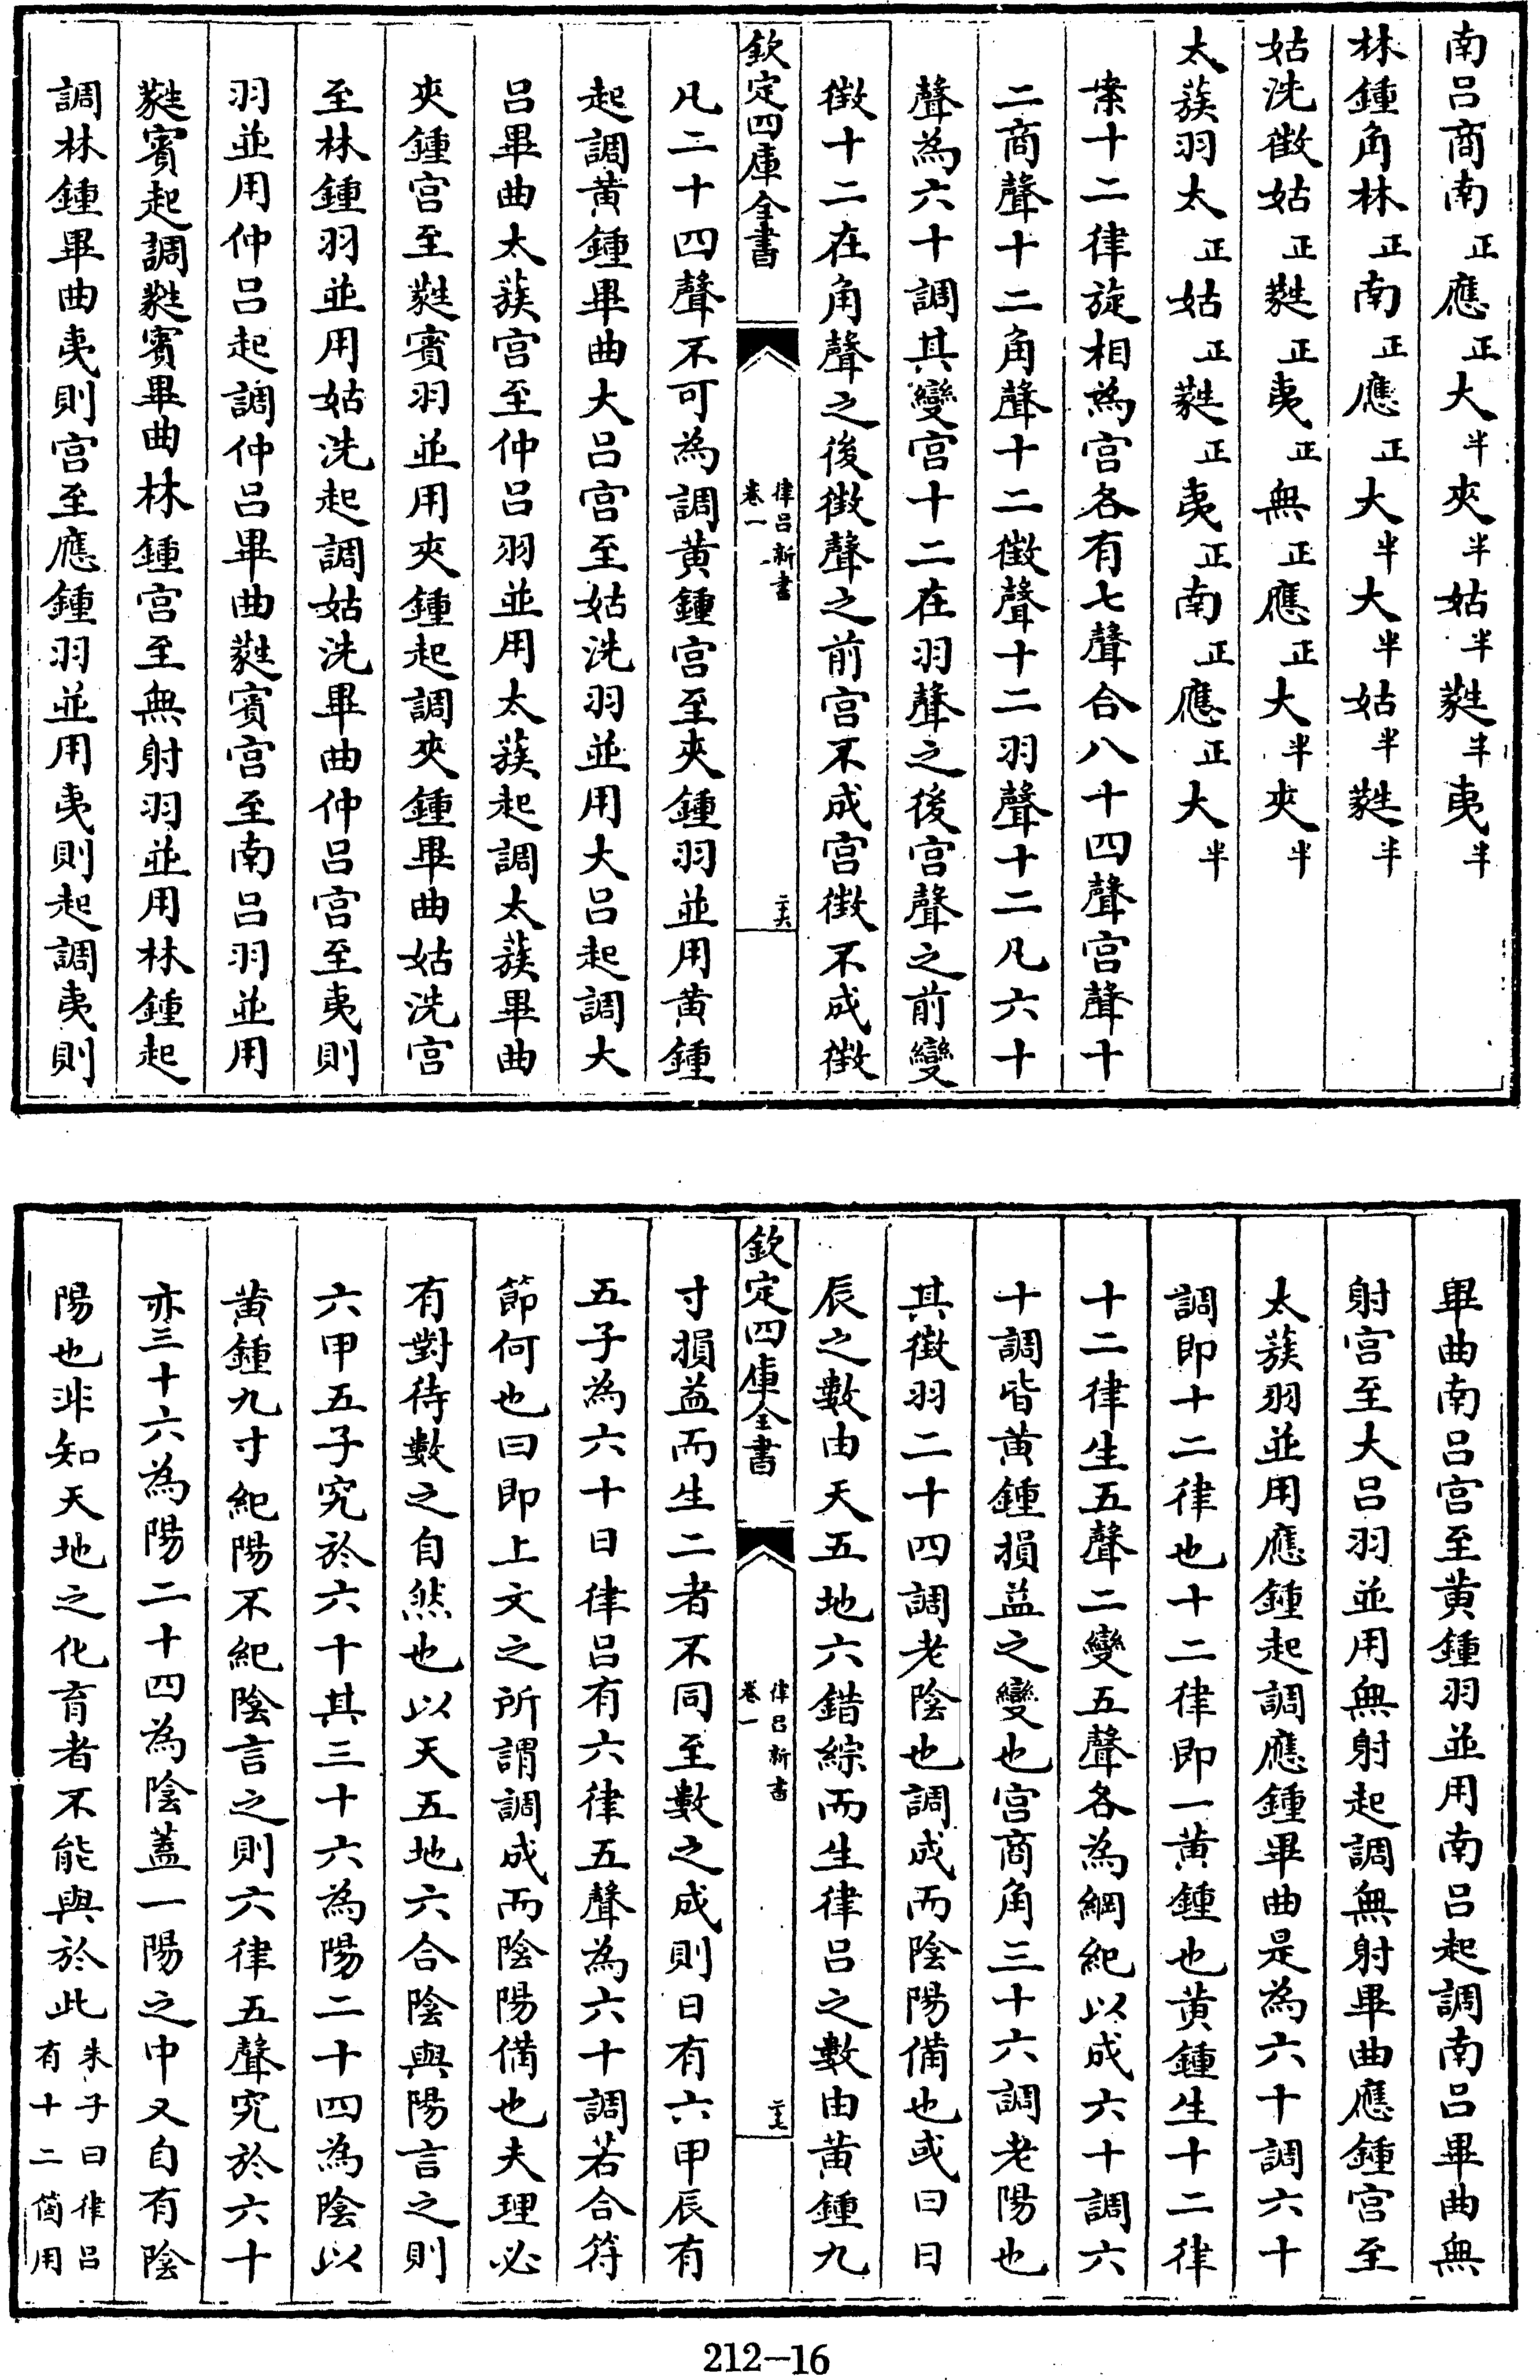 南呂商南正應正大半夾半姑半蕤半夷半
林鍾角林正南正應正大半大半姑半蕤半
姑洗徵姑正蕤正夷正無正應正大半夾半
太蔟羽太正姑正蕤正夷正南正應正大半
案十二律旋相為宮各有七聲合八十四聲宮聲十
二商聲十二角聲十二徵聲十二羽聲十二凡六十
聲為六十調其變宮十二在羽聲之後宮聲之前變
徵十二在角聲之後徵聲之前宮不成宮徵不成徵
欽定四庫全書
律呂新書
卷一
二十六
凡二十四聲不可為調黃鍾宮至夾鍾羽並用黃鍾
起調黃鍾畢曲大呂宮至姑洗羽並用大呂起調大
呂畢曲太蔟宮至仲呂羽並用太蔟起調太蔟畢曲
夾鍾宮至蕤賓羽並用夾鍾起調夾鍾畢曲姑洗宮
至林鍾羽並用姑洗起調姑洗畢曲仲呂宮至夷則
羽並用仲呂起調仲呂畢曲蕤賓宮至南呂羽並用
蕤賓起調蕤賓畢曲林鍾宮至無射羽並用林鍾起
調林鍾畢曲夷則宮至應鍾羽並用夷則起調夷則
畢曲南呂宮至黃鍾羽並用南呂起調南呂畢曲無
射宮至大呂羽並用無射起調無射畢曲應鍾宮至
太蔟羽並用應鍾起調應鍾畢曲是為六十調六十
調即十二律也十二律即一黃鍾也黃鍾生十二律
十二律生五聲二變五聲各為綱紀以成六十調六
十調皆黃鍾損益之變也宮商角三十六調老陽也
其徵羽二十四調老陰也調成而陰陽備也或曰日
辰之數由天五地六錯綜而生律呂之數由黃鍾九
欽定四庫全書
律呂新書
卷一
二十七
寸損益而生二者不同至數之成則日有六甲辰有
五子為六十日律呂有六律五聲為六十調若合符
節何也曰即上文之所謂調成而陰陽備也夫理必
有對待數之自然也以天五地六合陰與陽言之則
六甲五子究於六十其三十六為陽二十四為陰以
黃鍾九寸紀陽不紀陰言之則六律五聲究於六十
亦三十六為陽二十四為陰蓋一陽之中又自有陰
陽也非知天地之化育者不能與於此朱子曰律呂
有十二箇用
212-16